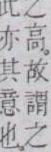 之高。故謂之
此亦其意也。